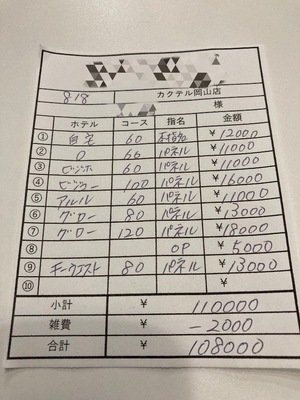 8/8 カクテル岡山店
様
ホテル コース 指名 金額
① 自宅 60 本指名 ¥12000
② 60 パネル ¥11000
③ 60 パネル ¥11000
④ 100 パネル ¥16000
⑤ アルル 60 パネル ¥11000
⑥ グロー 80 パネル ¥13000
⑦ グロー 120 パネル ¥18000
⑧ OP ¥5,000
⑨ キーウエスト 80 パネル ¥13000
⑩ ¥
小計 ¥ 110000
雑費 ¥ -2000
合計 ¥ 108000